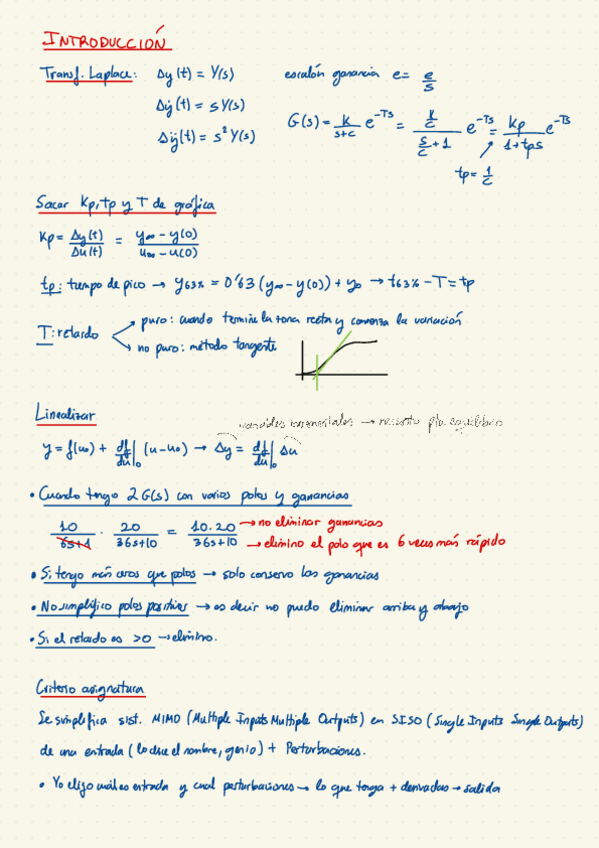 INTRODUCCIÓN
Transf. Laplace: Δy(t) = Y(s) escalón ganancia e = e/s
Δẏ(t) = sY(s)
Δÿ(t) = s² Y(s)
G(s) = k/(s+c) e^-Ts = (k/c)/(s/c + 1) e^-Ts = kp/(1+tps) e^-Ts
tp = 1/c
Sacar Kp, tp y T de gráfica
Kp = Δy(t)/Δu(t) = (y∞ - y(0))/(u∞ - u(0))
tp: tiempo de pico → y63% = 0'63 (y∞ - y(0)) + y0 → t63% - T = tp
T: retardo
puro: cuando termine la zona recta y comienza la variación
no puro: método tangente
Linealizar
variables incrementales → necesito pto. equilibrio
y = f(u0) + df/du|0 (u - u0) → Δy = df/du|0 Δu
• Cuando tengo 2 G(s) con varios polos y ganancias
10/(6s+1) · 20/(36s+10) = 10·20/(36s+10) → no eliminar ganancias
→ elimino el polo que es 6 veces más rápido
• Si tengo más ceros que polos → solo conservo las ganancias
• No simplifico polos positivos → es decir no puedo eliminar arriba y abajo
• Si el retardo es >0 → elimino.
Criterio asignatura
Se simplifica sist. MIMO (Multiple Inputs Multiple Outputs) en SISO (Single Inputs Single Outputs)
de una entrada (lo dice el nombre, genio) + Perturbaciones.
• Yo elijo cuál es entrada y cual perturbaciones → lo que tenga + derivadas → salida